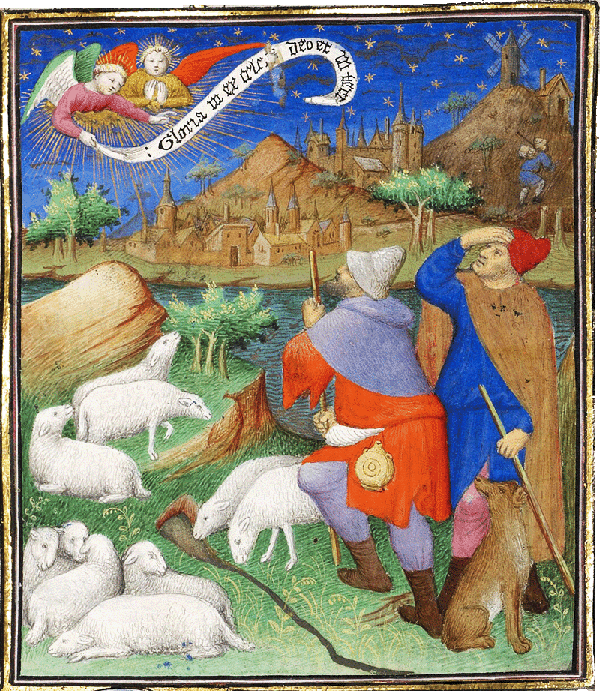 : Gloria in ex celc deo et in terra